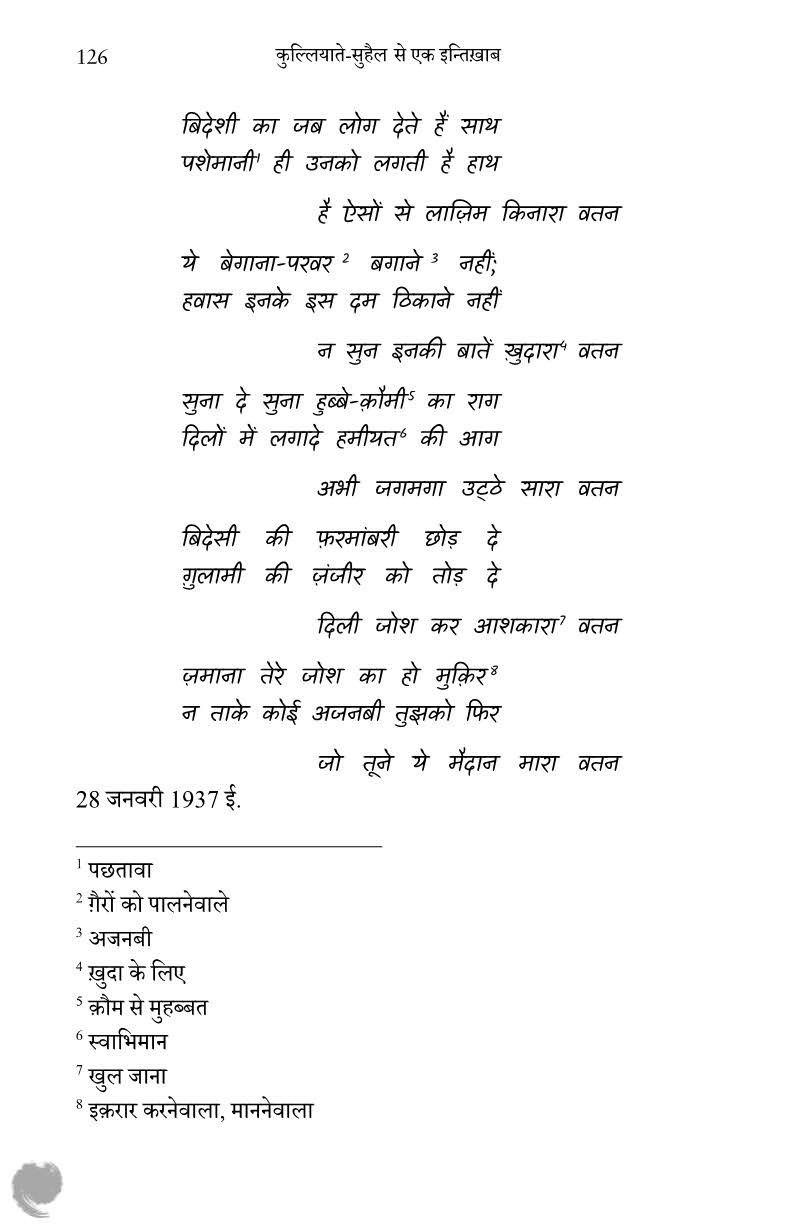 126 कुल्लियाते-सुहैल से एक इन्तिख़ाब
बिदेशी का जब लोग देते हैं साथ
पशेमानी¹ ही उनको लगती है हाथ
है ऐसों से लाज़िम किनारा वतन
ये बेगाना-परवर ² बगाने ³ नहीं;
हवास इनके इस दम ठिकाने नहीं
न सुन इनकी बातें ख़ुदारा⁴ वतन
सुना दे सुना हुब्बे-क़ौमी⁵ का राग
दिलों में लगादे हमीयत⁶ की आग
अभी जगमगा उट्ठे सारा वतन
बिदेसी की फ़रमांबरी छोड़ दे
ग़ुलामी की ज़ंजीर को तोड़ दे
दिली जोश कर आशकारा⁷ वतन
ज़माना तेरे जोश का हो मुक़िर⁸
न ताके कोई अजनबी तुझको फिर
जो तूने ये मैदान मारा वतन
28 जनवरी 1937 ई.
¹ पछतावा
² ग़ैरों को पालनेवाले
³ अजनबी
⁴ ख़ुदा के लिए
⁵ क़ौम से मुहब्बत
⁶ स्वाभिमान
⁷ खुल जाना
⁸ इक़रार करनेवाला, माननेवाला